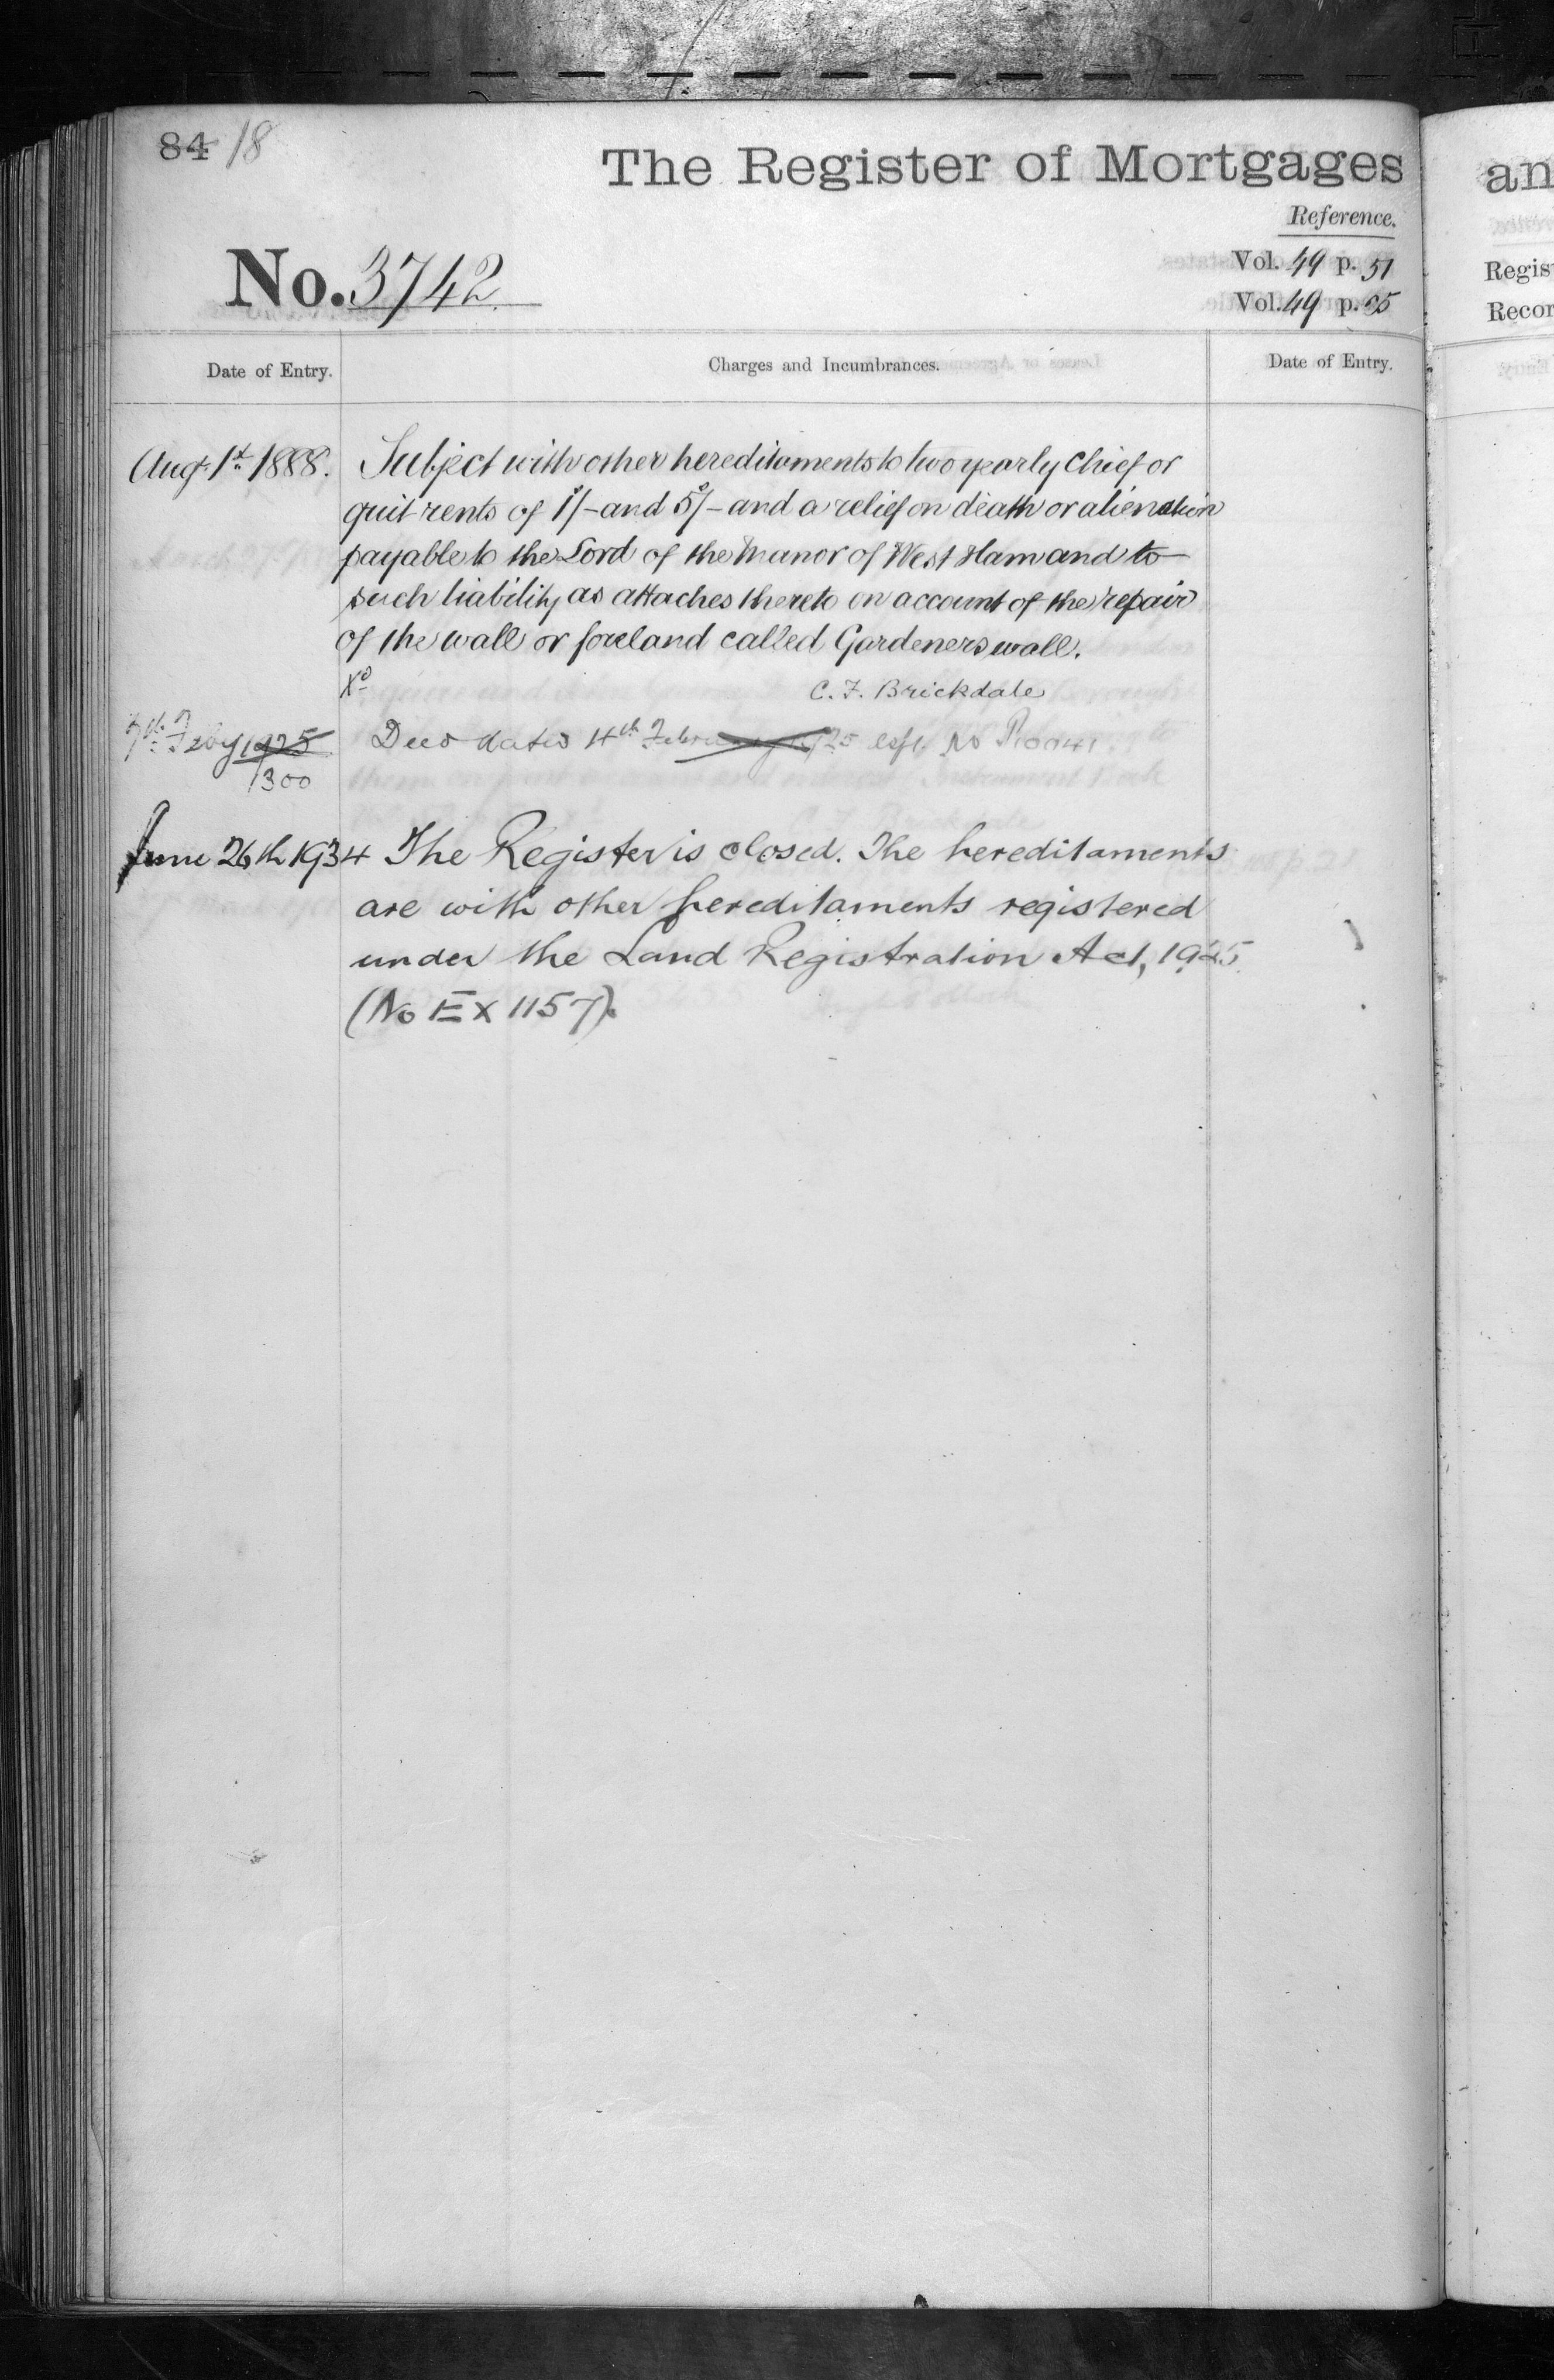 84 18
The Register of Mortgages
Reference.
No. 3742
Vol. 49 p. 51
Vol. 49 p.
Date of Entry.
Charges and Incumbrances.
Date of Entry.
Aug: 1st 1888.
Subject with other hereditaments to two yearly Chief or
quit rents of 1s/- and 5s/- and a relief on death or alienation
payable to the Lord of the Manor of West Ham and to
such liability as attaches thereto on account of the repair
of the wall or foreland called Gardeners wall.
Xd
C. F. Brickdale
7th Feby 1925
1300
Deed dated 4th February 1925 No
June 26th 1934 The Register is closed. The hereditaments
are with other hereditaments registered
under the Land Registration Act, 1925
(No EX 1157).
an
Regis
Recor